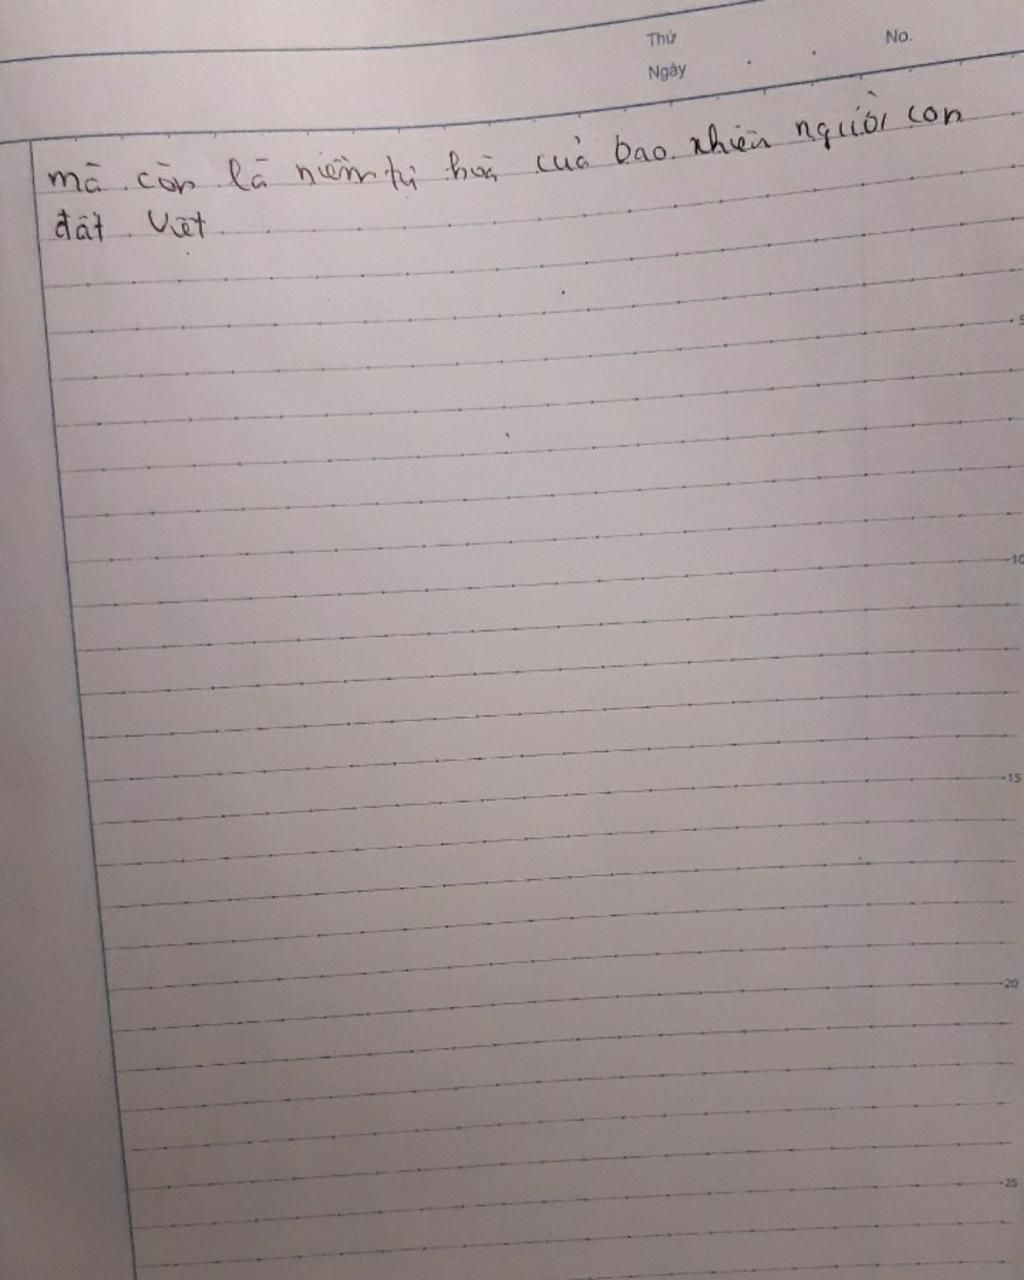 Thứ
No.
Ngày
mà còn là niềm tự hào của bao nhiêu người con
đất Việt
5
10
15
20
25